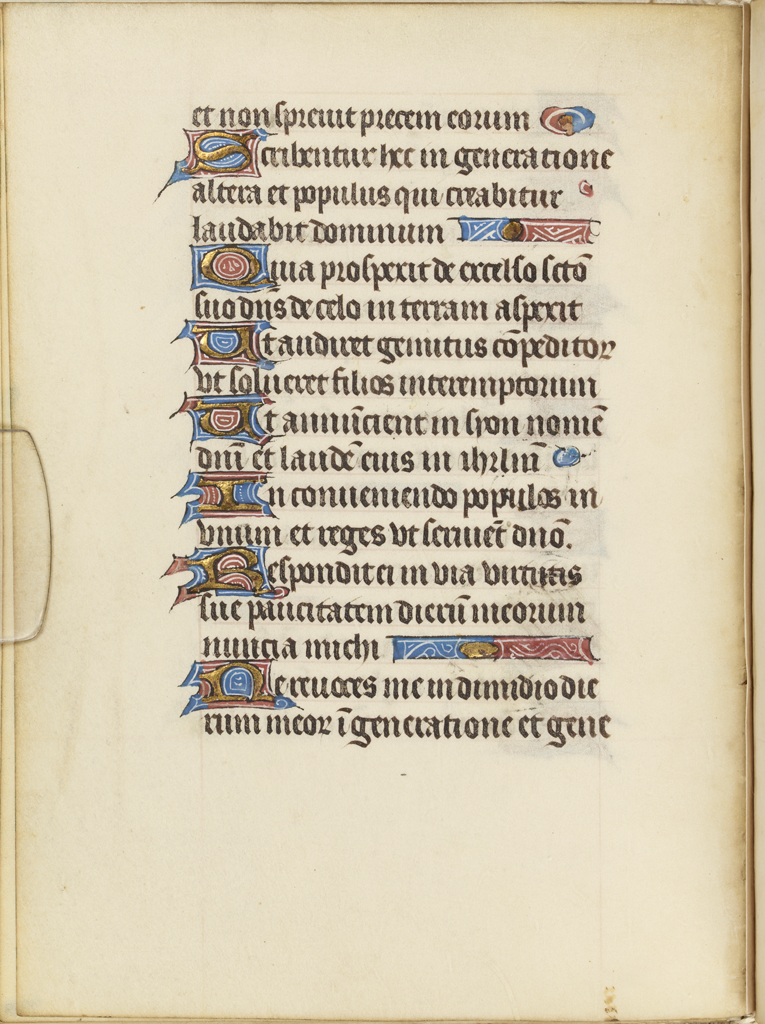 et non spreuit precem eorum
Scribentur hec in generatione
altera et populus qui creabitur
laudabit dominum
Quia prospexit de excelso scō
suo dn̄s de celo in terram aspexit
Ut audiret gemitus cōpeditoꝝ
vt solueret filios interemptorum
Ut annūcient in syon nomē
dn̄i et laudē eius in ihrl̄m̄
In conueniendo populos in
vnum et reges vt seruiēt dn̄o.
Respondit ei in via virtutis
sue paucitatem dierū meorum
nuncia michi
Ne reuoces me in dimidio die
rum meoꝝ ī generatione et gene